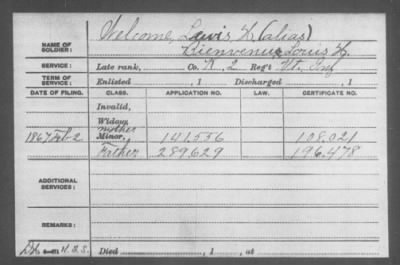 Welcome, Lewis H. (alias)
NAME OF SOLDIER: Bienvenue, Louis H.
SERVICE: Late rank, Co. K, 2 Reg't Vt. Inf
TERM OF SERVICE: Enlisted , 1 Discharged , 1
DATE OF FILING. CLASS. APPLICATION NO. LAW. CERTIFICATE NO.
Invalid,
Widow,
mother
1867 Feb 2 Minor, 141.556 108.021
Father 289629 196.478
ADDITIONAL SERVICES:
REMARKS:
Died , 1 , at